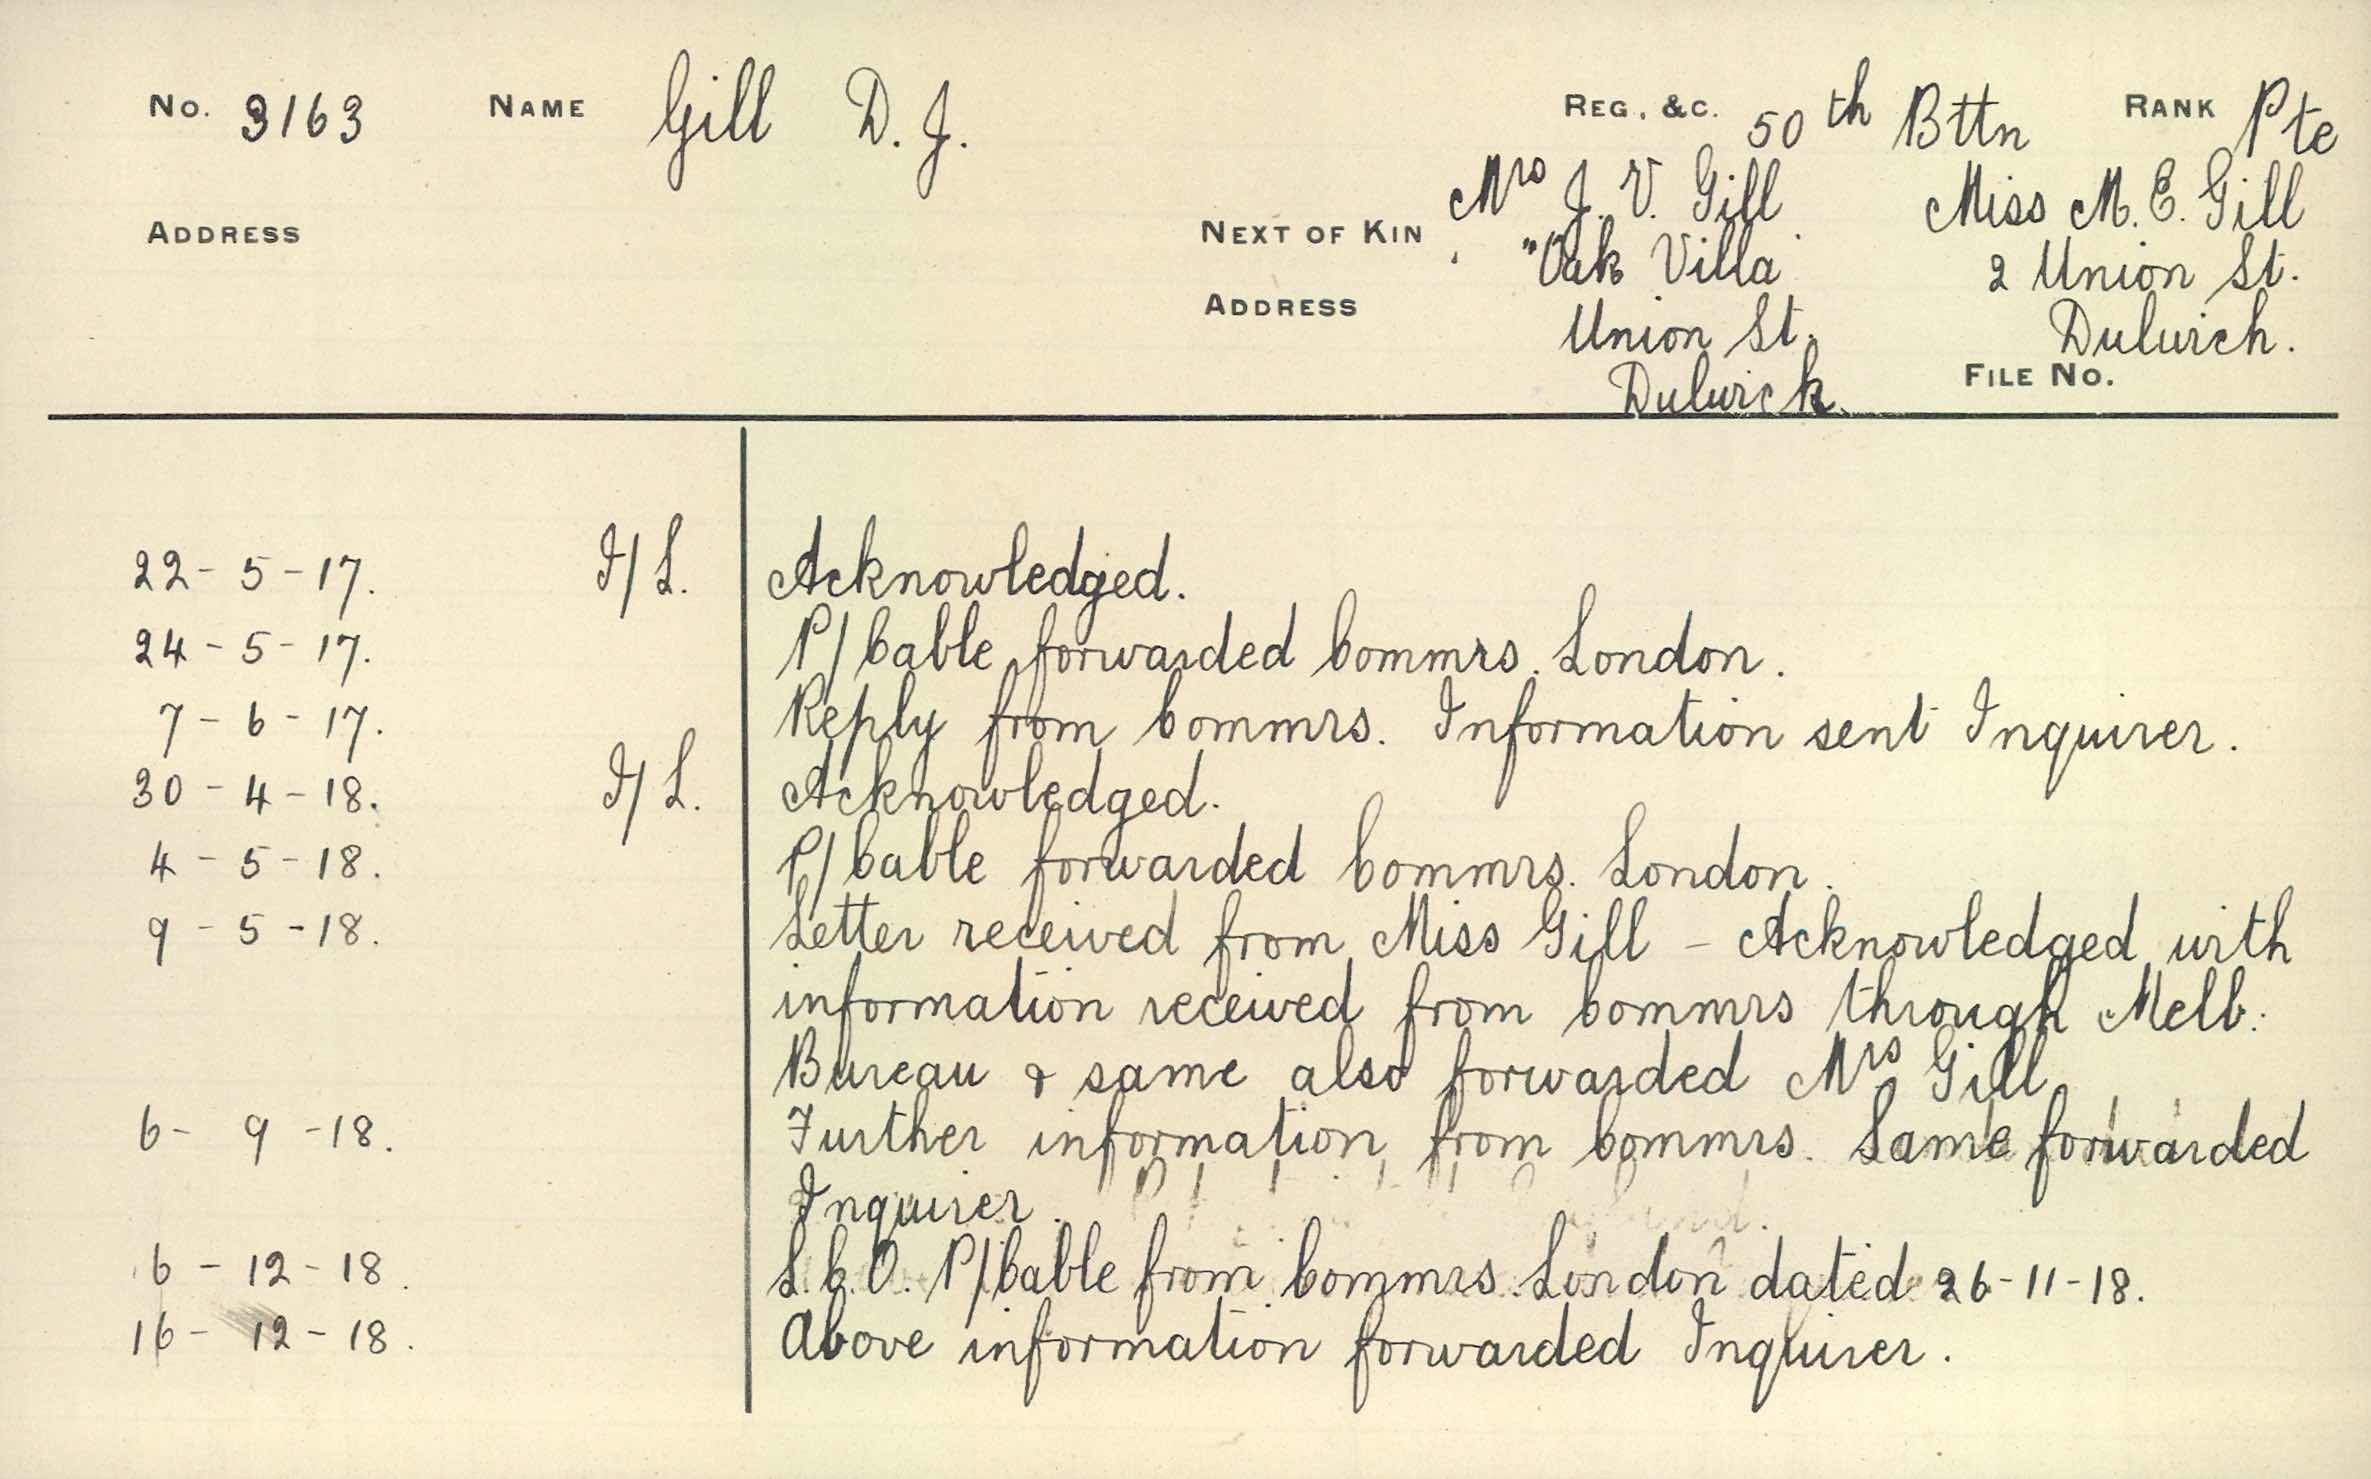 No. 3163 NAME Gill D. J. REG. &C. 50th Bttn RANK Pte
Mrs J. V. Gill Miss M. E. Gill
ADDRESS NEXT OF KIN "Oak Villa" 2 Union St.
ADDRESS Union St. Dulwich.
Dulwich. FILE No.
22-5-17. I/L. Acknowledged.
24-5-17. P/Cable forwarded Commrs. London.
7-6-17. Reply from Commrs. Information sent Inquirer.
30-4-18. I/L. Acknowledged.
4-5-18. P/Cable forwarded Commrs. London.
9-5-18. Letter received from Miss Gill - Acknowledged with
information received from Commrs through Melb.
Bureau & same also forwarded Mrs Gill
6-9-18. Further information from Commrs. Same forwarded
Inquirer.
6-12-18. L.C.O. P/Cable from Commrs. London dated 26-11-18.
16-12-18. Above information forwarded Inquirer.